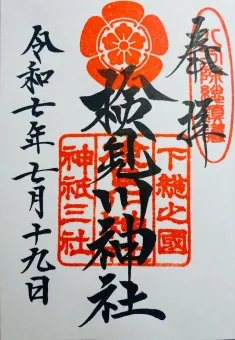 奉拝
検見川神社
令和七年七月十九日
下総之國
神祇三社